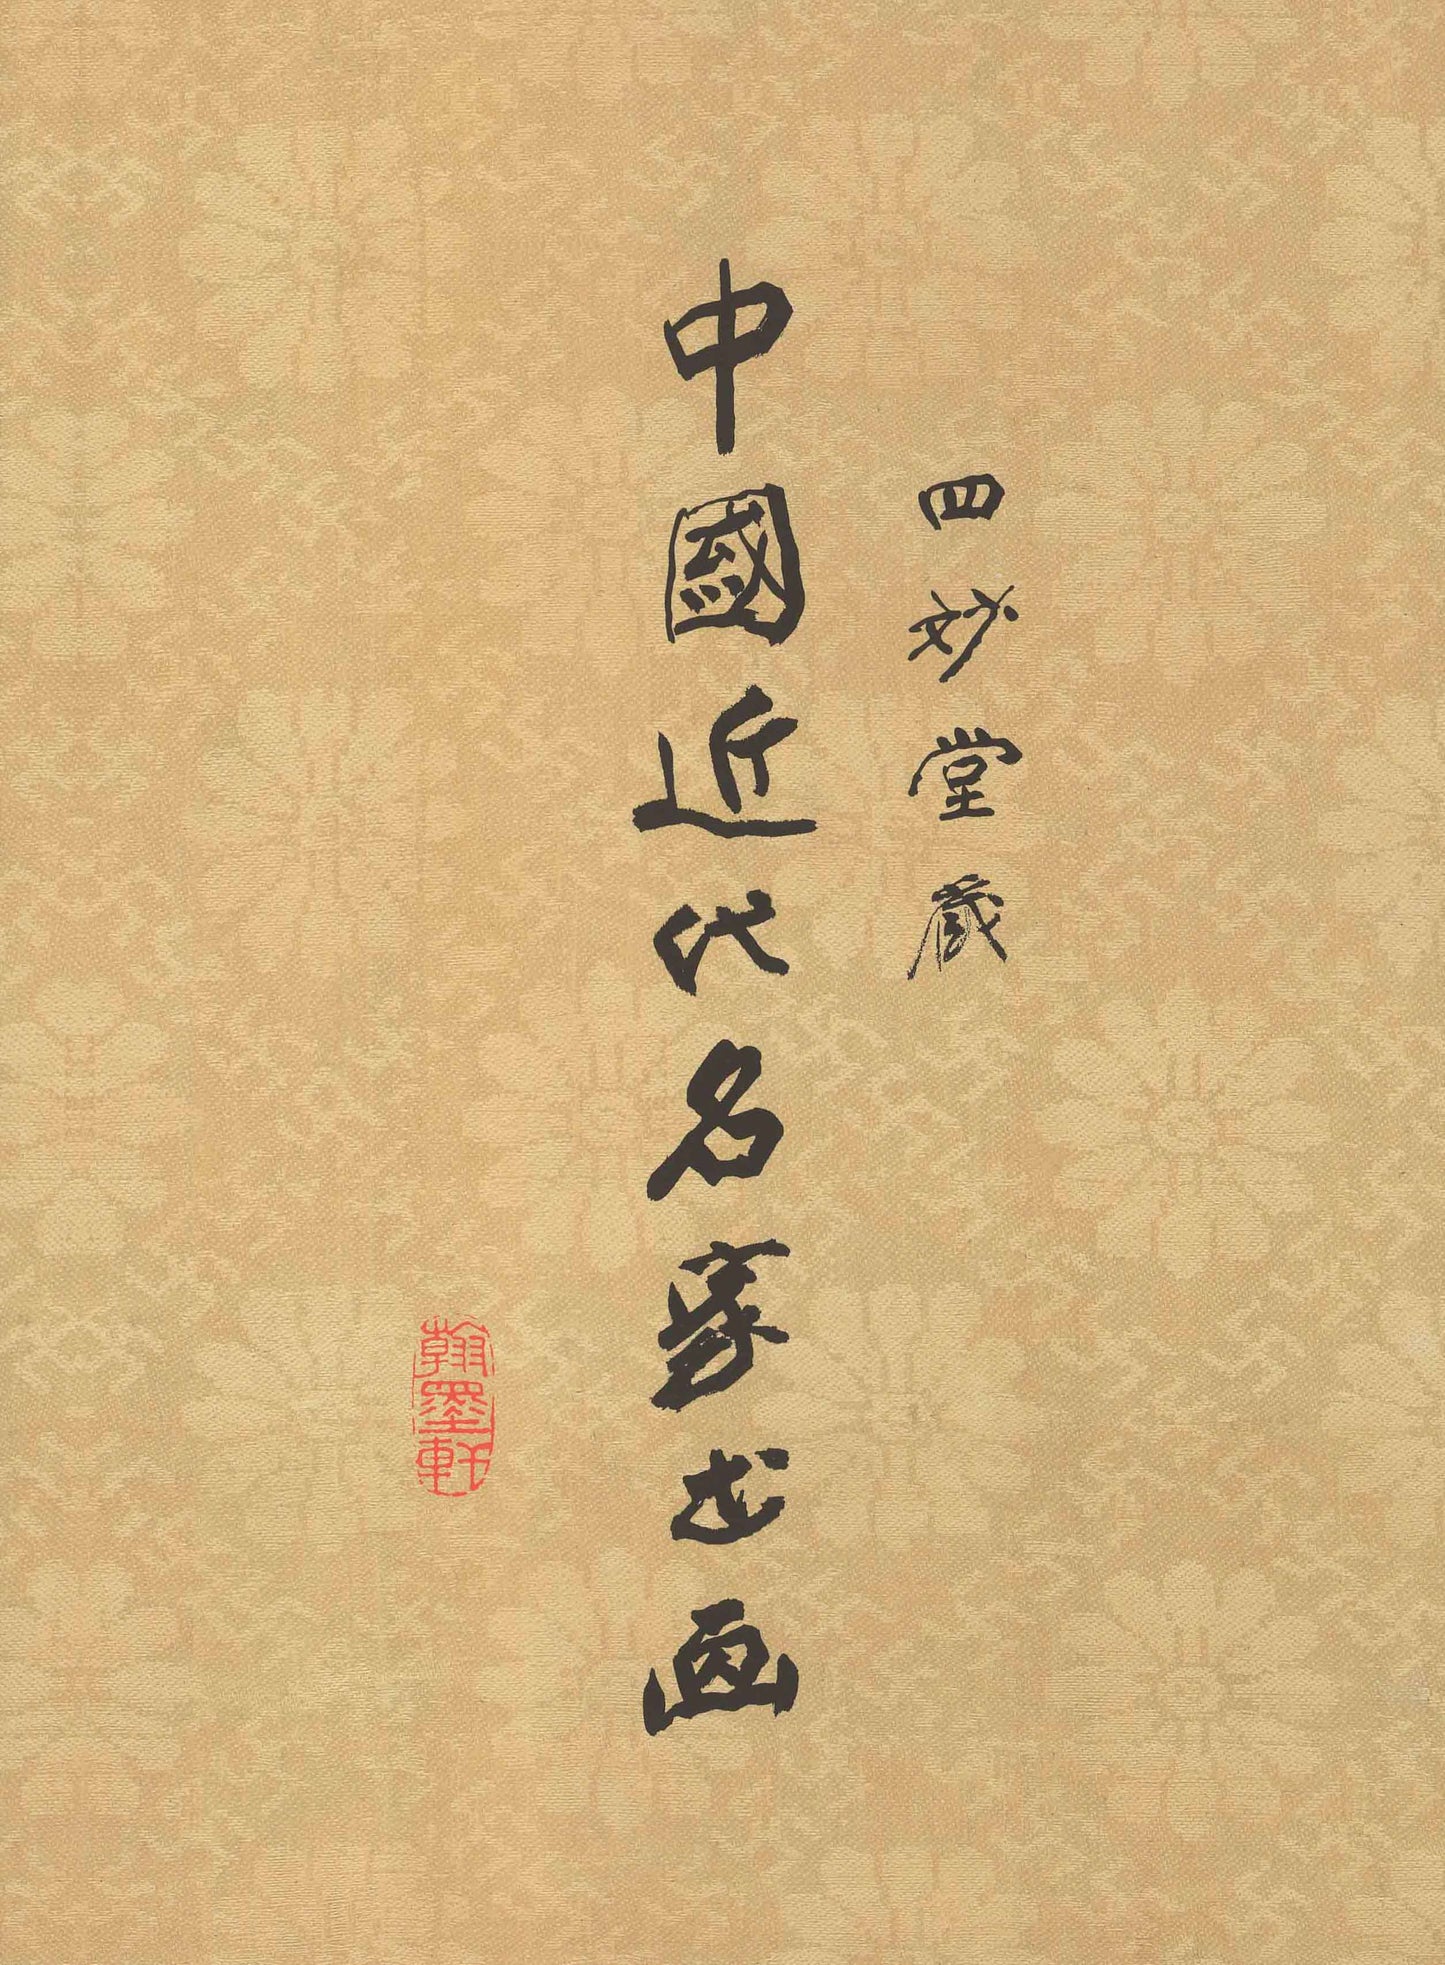 四妙堂藏
中國近代名家书画
翰墨軒